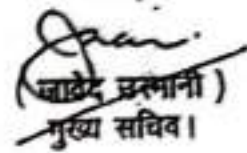 (जावेद उस्मानी)
मुख्य सचिव।